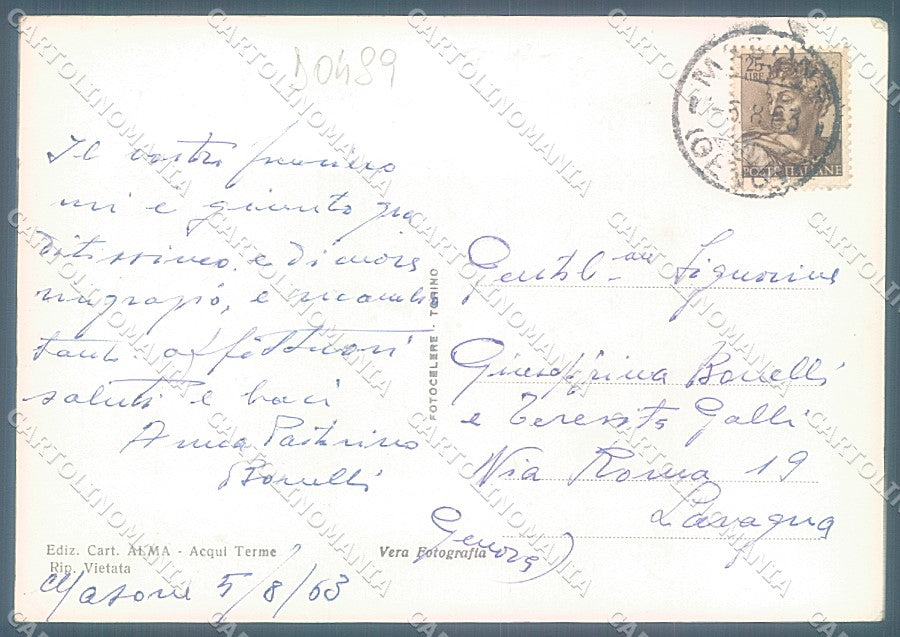 D0489
Il vostro
mi è giunto
e di cuore
ringrazio, e ricambio
tanti affettuosi
saluti e baci
Anna Pastorino
Bonelli
Ediz. Cart. ALMA - Acqui Terme
Rip. Vietata
Masone 5/8/63
Vera Fotografia
FOTOCELERE - TORINO
25
LIRE
POSTE ITALIANE
MASONE
5.8.63
(GENOVA)
Gentil. Signorine
Giuseppina Bonelli
e Teresita Galli
Via Roma 19
Lavagna
(Genova)
CARTOLINOMANIA